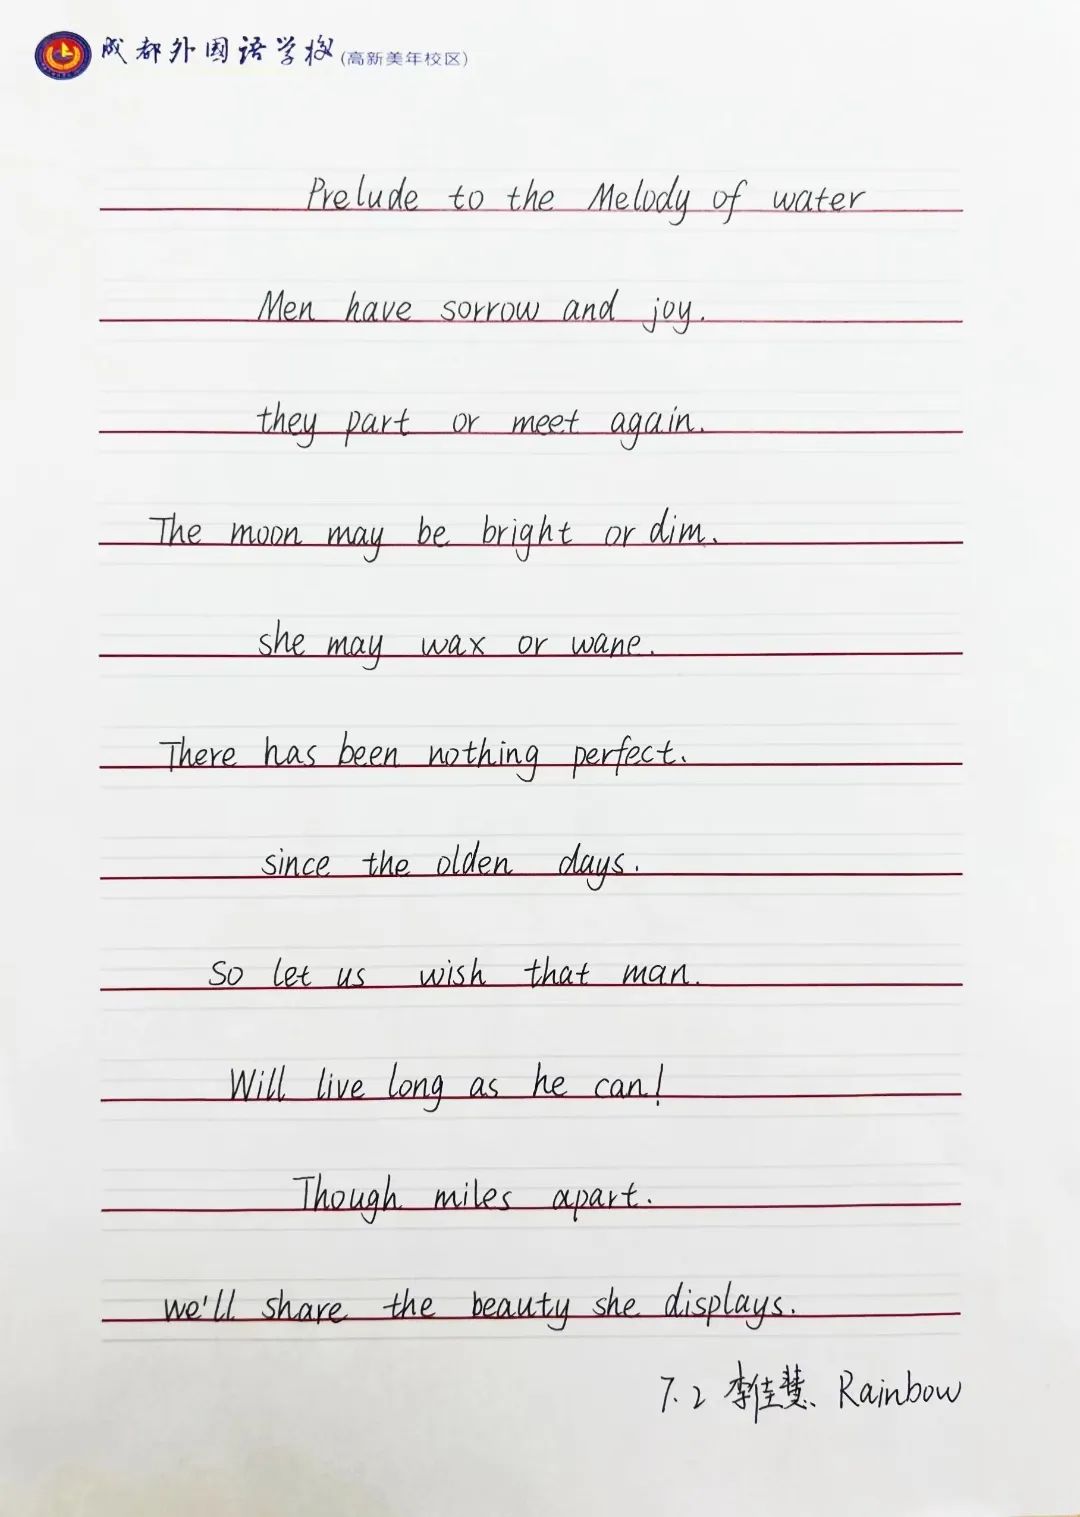 成都外国语学校(高新美年校区)
Prelude to the Melody of water
Men have sorrow and joy.
they part or meet again.
The moon may be bright or dim.
she may wax or wane.
There has been nothing perfect.
since the olden days.
So let us wish that man.
Will live long as he can!
Though miles apart.
we'll share the beauty she displays.
7.2 李佳慧、Rainbow